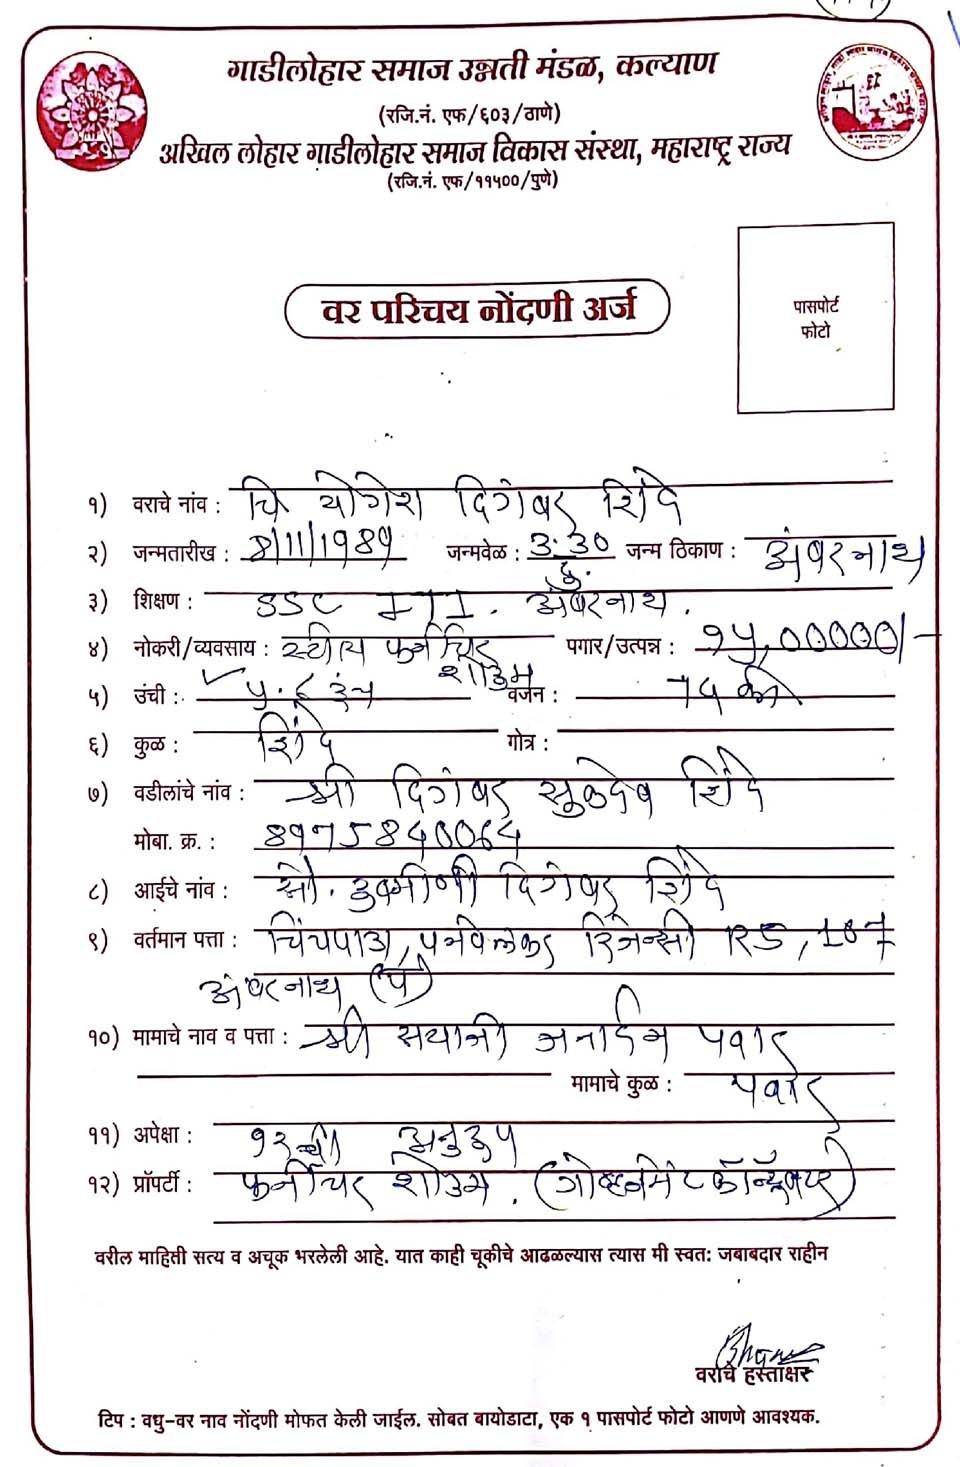 गाडीलोहार समाज उन्नती मंडळ, कल्याण
(रजि.नं. एफ/६०३/ठाणे)
अखिल लोहार गाडीलोहार समाज विकास संस्था, महाराष्ट्र राज्य
(रजि.नं. एफ/११५००/पुणे)
पासपोर्ट
फोटो
वर परिचय नोंदणी अर्ज
१) वराचे नांव : चि योगेश दिगंबर शिंदे
२) जन्मतारीख : 8/11/1989 जन्मवेळ : 3:30 दु. जन्म ठिकाण : अंबरनाथ
३) शिक्षण : SSC ITI. अंबरनाथ.
४) नोकरी/व्यवसाय : स्टील फर्निचर शोउम पगार/उत्पन्न : १५,00000/-
५) उंची : ५.८ इंच वजन : 75 की
६) कुळ : शिंदे गोत्र :
७) वडीलांचे नांव : श्री दिगंबर सुकदेव शिंदे
मोबा. क्र. : 8975840064
८) आईचे नांव : सौ. रुक्मीणी दिगंबर शिंदे
९) वर्तमान पत्ता : चिंचपाडा, पनवेलकर रिजेन्सी R5, 107
अंबरनाथ (प)
१०) मामाचे नाव व पत्ता : श्री सयाजी जनार्दन पवार
मामाचे कुळ : पवार
११) अपेक्षा : १२वी अनुरुप
१२) प्रॉपर्टी : फर्निचर शोउम. (गोव्हर्नमेंट कॉन्ट्रॅक्टर)
वरील माहिती सत्य व अचूक भरलेली आहे. यात काही चूकीचे आढळल्यास त्यास मी स्वत: जबाबदार राहीन
वराचे हस्ताक्षर
टिप : वधु-वर नाव नोंदणी मोफत केली जाईल. सोबत बायोडाटा, एक १ पासपोर्ट फोटो आणणे आवश्यक.